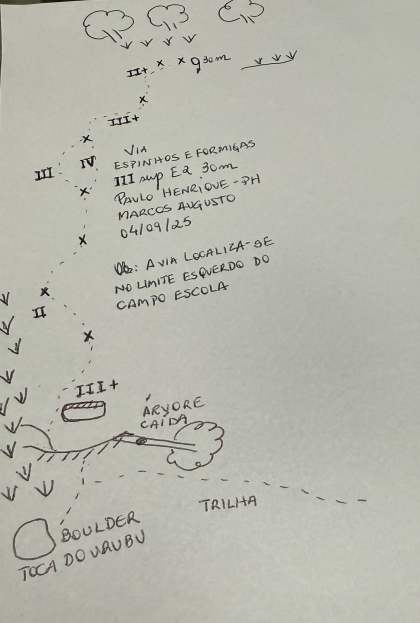 II+
30m
III+
III
IV
VIA
ESPINHOS E FORMIGAS
III sup E2 30m
PAULO HENRIQUE - PH
MARCOS AUGUSTO
04/09/25
Ob: A VIA LOCALIZA-SE
NO LIMITE ESQUERDO DO
CAMPO ESCOLA
II
III+
ÁRVORE
CAÍDA
TRILHA
BOULDER
TOCA DO URUBU